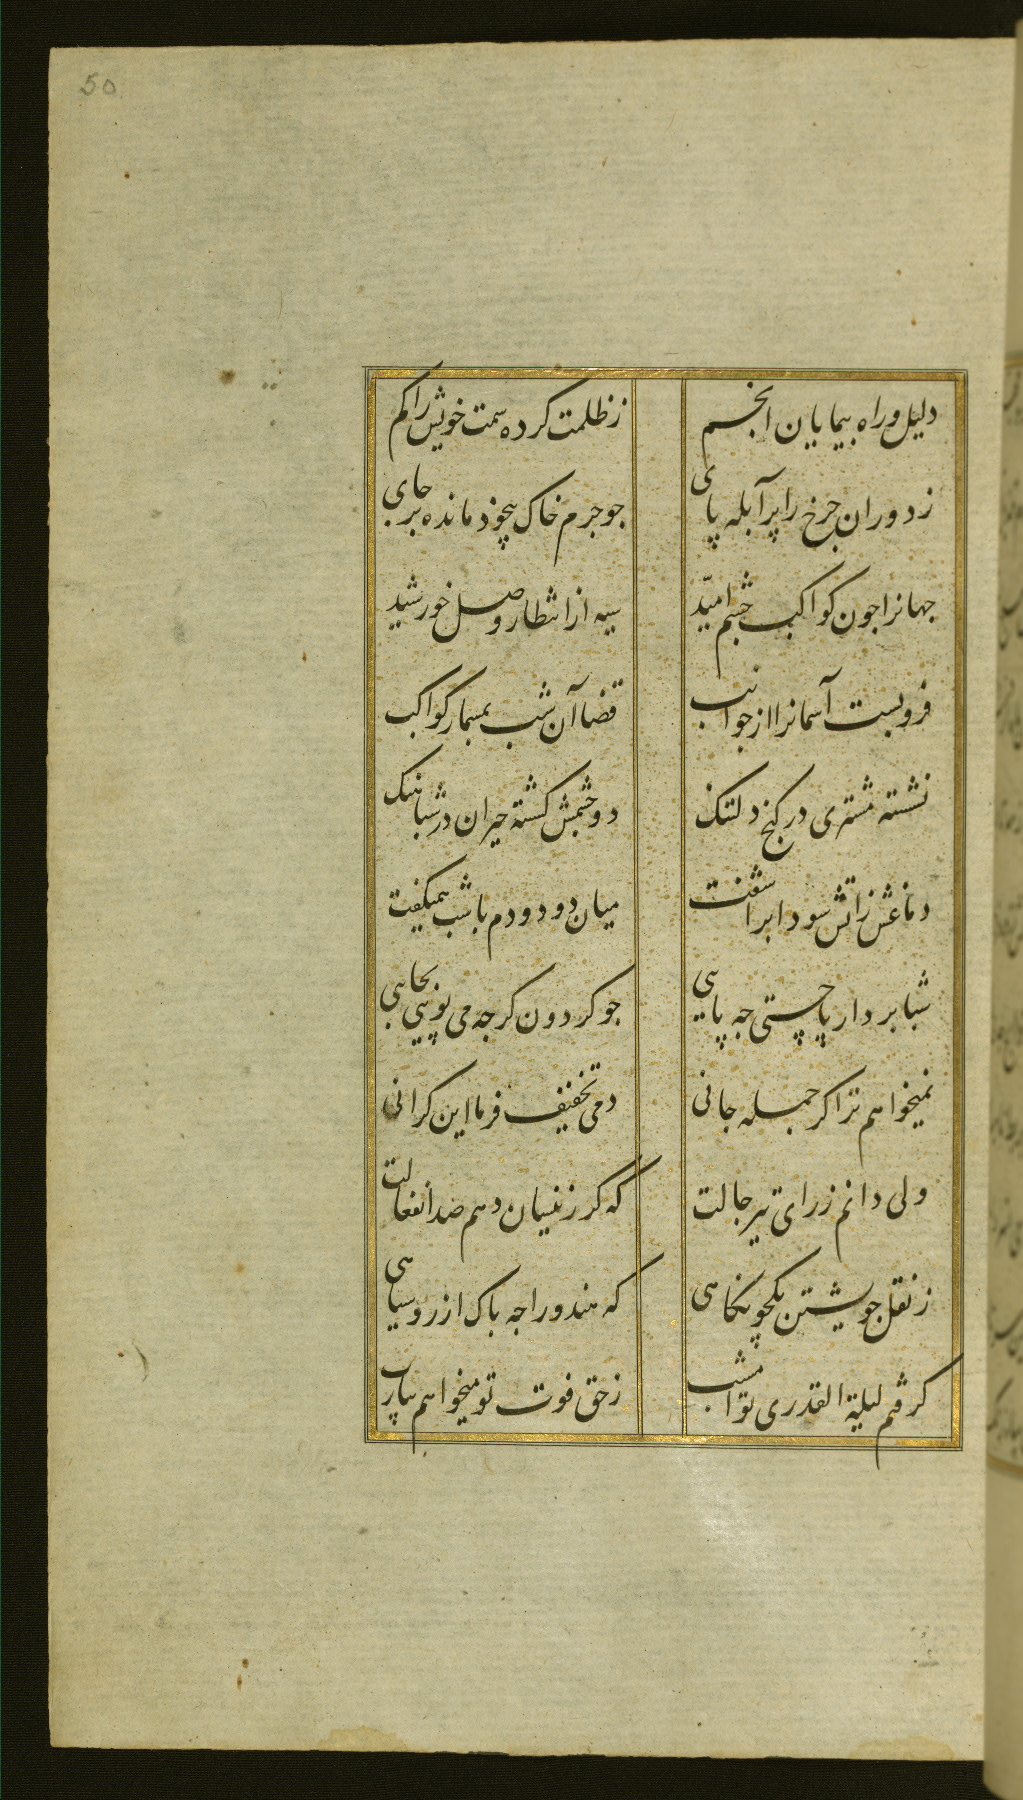 50
دلیل و راه پیمایان انجم
ز ظلمت کرده سمت خویش را کم
ز دوران جرخ را پر آبله پای
جو جرم خاک بیخود مانده بر جای
جهانرا جون کواکب جشم امیّد
سیه از انتظار وصل خورشید
فرو بست آسمانرا از جوانب
قضا آن شب بمسمار کواکب
نشسته مشتری در کنج دلتنک
دو جشمش کشته حیران در شباهنک
دماغش زاتش سودا بر اشفت
میان دود و دم با شب همیکفت
شبا بردار پا جستی جه پایی
جو کردون کرجه می پویی بجایی
نمیخواهم ترا کر جمله جانی
دمی تخفیف فرما این کرانی
ولی دانم ز رای تیر حالت
که کر زینسان دهم صد انفعالت
ز نقل خویشتن یکجو نکاهی
که هندو را جه باک از رو سیاهی
کرفتم لیلة القدری تو امشب
ز حق فوت تو میخواهم بیارب